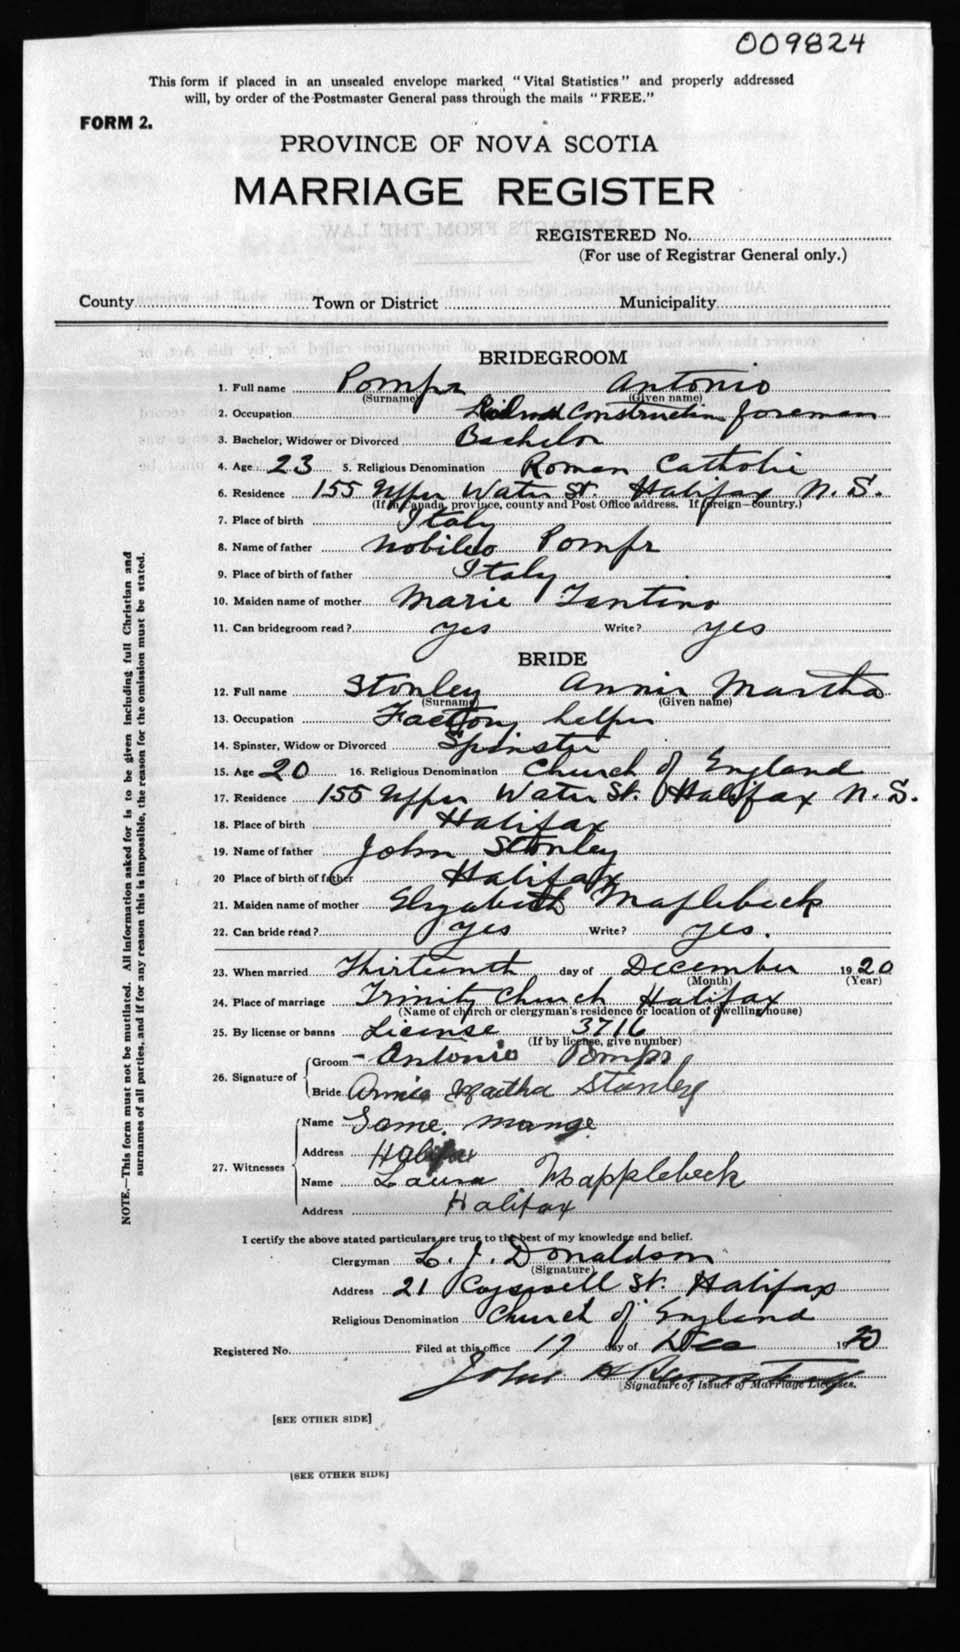 009824
This form if placed in an unsealed envelope marked "Vital Statistics" and properly addressed
will, by order of the Postmaster General pass through the mails "FREE."
FORM 2.
PROVINCE OF NOVA SCOTIA
MARRIAGE REGISTER
REGISTERED No.
(For use of Registrar General only.)
County Town or District Municipality
BRIDEGROOM
1. Full name Antonio
(Surname) (Given name)
2. Occupation Construction foreman
3. Bachelor, Widower or Divorced Bachelor
4. Age 23 5. Religious Denomination Roman Catholic
6. Residence 155 Upper Water St. Halifax N. S.
(If in Canada, province, county and Post Office address. If foreign—country.)
7. Place of birth Italy
8. Name of father
9. Place of birth of father Italy
10. Maiden name of mother Marie
11. Can bridegroom read? yes Write? yes
BRIDE
12. Full name Stanley Annie Martha
(Surname) (Given name)
13. Occupation Factory helper
14. Spinster, Widow or Divorced Spinster
15. Age 20 16. Religious Denomination Church of England
17. Residence 155 Upper Water St. Halifax N. S.
18. Place of birth Halifax
19. Name of father John Stanley
20 Place of birth of father Halifax
21. Maiden name of mother Elizabeth Maplebeck
22. Can bride read? yes Write? yes.
23. When married Thirteenth day of December 1920
(Month) (Year)
24. Place of marriage Trinity Church Halifax
(Name of church or clergyman's residence or location of dwelling house)
25. By license or banns License 3716
(If by license, give number)
26. Signature of Groom Antonio
Bride Annie Martha Stanley
27. Witnesses Name
Address Halifax
Name Laura Mapplebeck
Address Halifax
I certify the above stated particulars are true to the best of my knowledge and belief.
Clergyman L. J. Donaldson
(Signature)
Address 21 St. Halifax
Religious Denomination Church of England
Registered No. Filed at this office 17 day of Dec 1920
John H
Signature of Issuer of Marriage Licenses.
[SEE OTHER SIDE]
[SEE OTHER SIDE]
NOTE.—This form must not be mutilated. All information asked for is to be given including full Christian and
surnames of all parties, and if for any reason this is impossible, the reason for the omission must be stated.